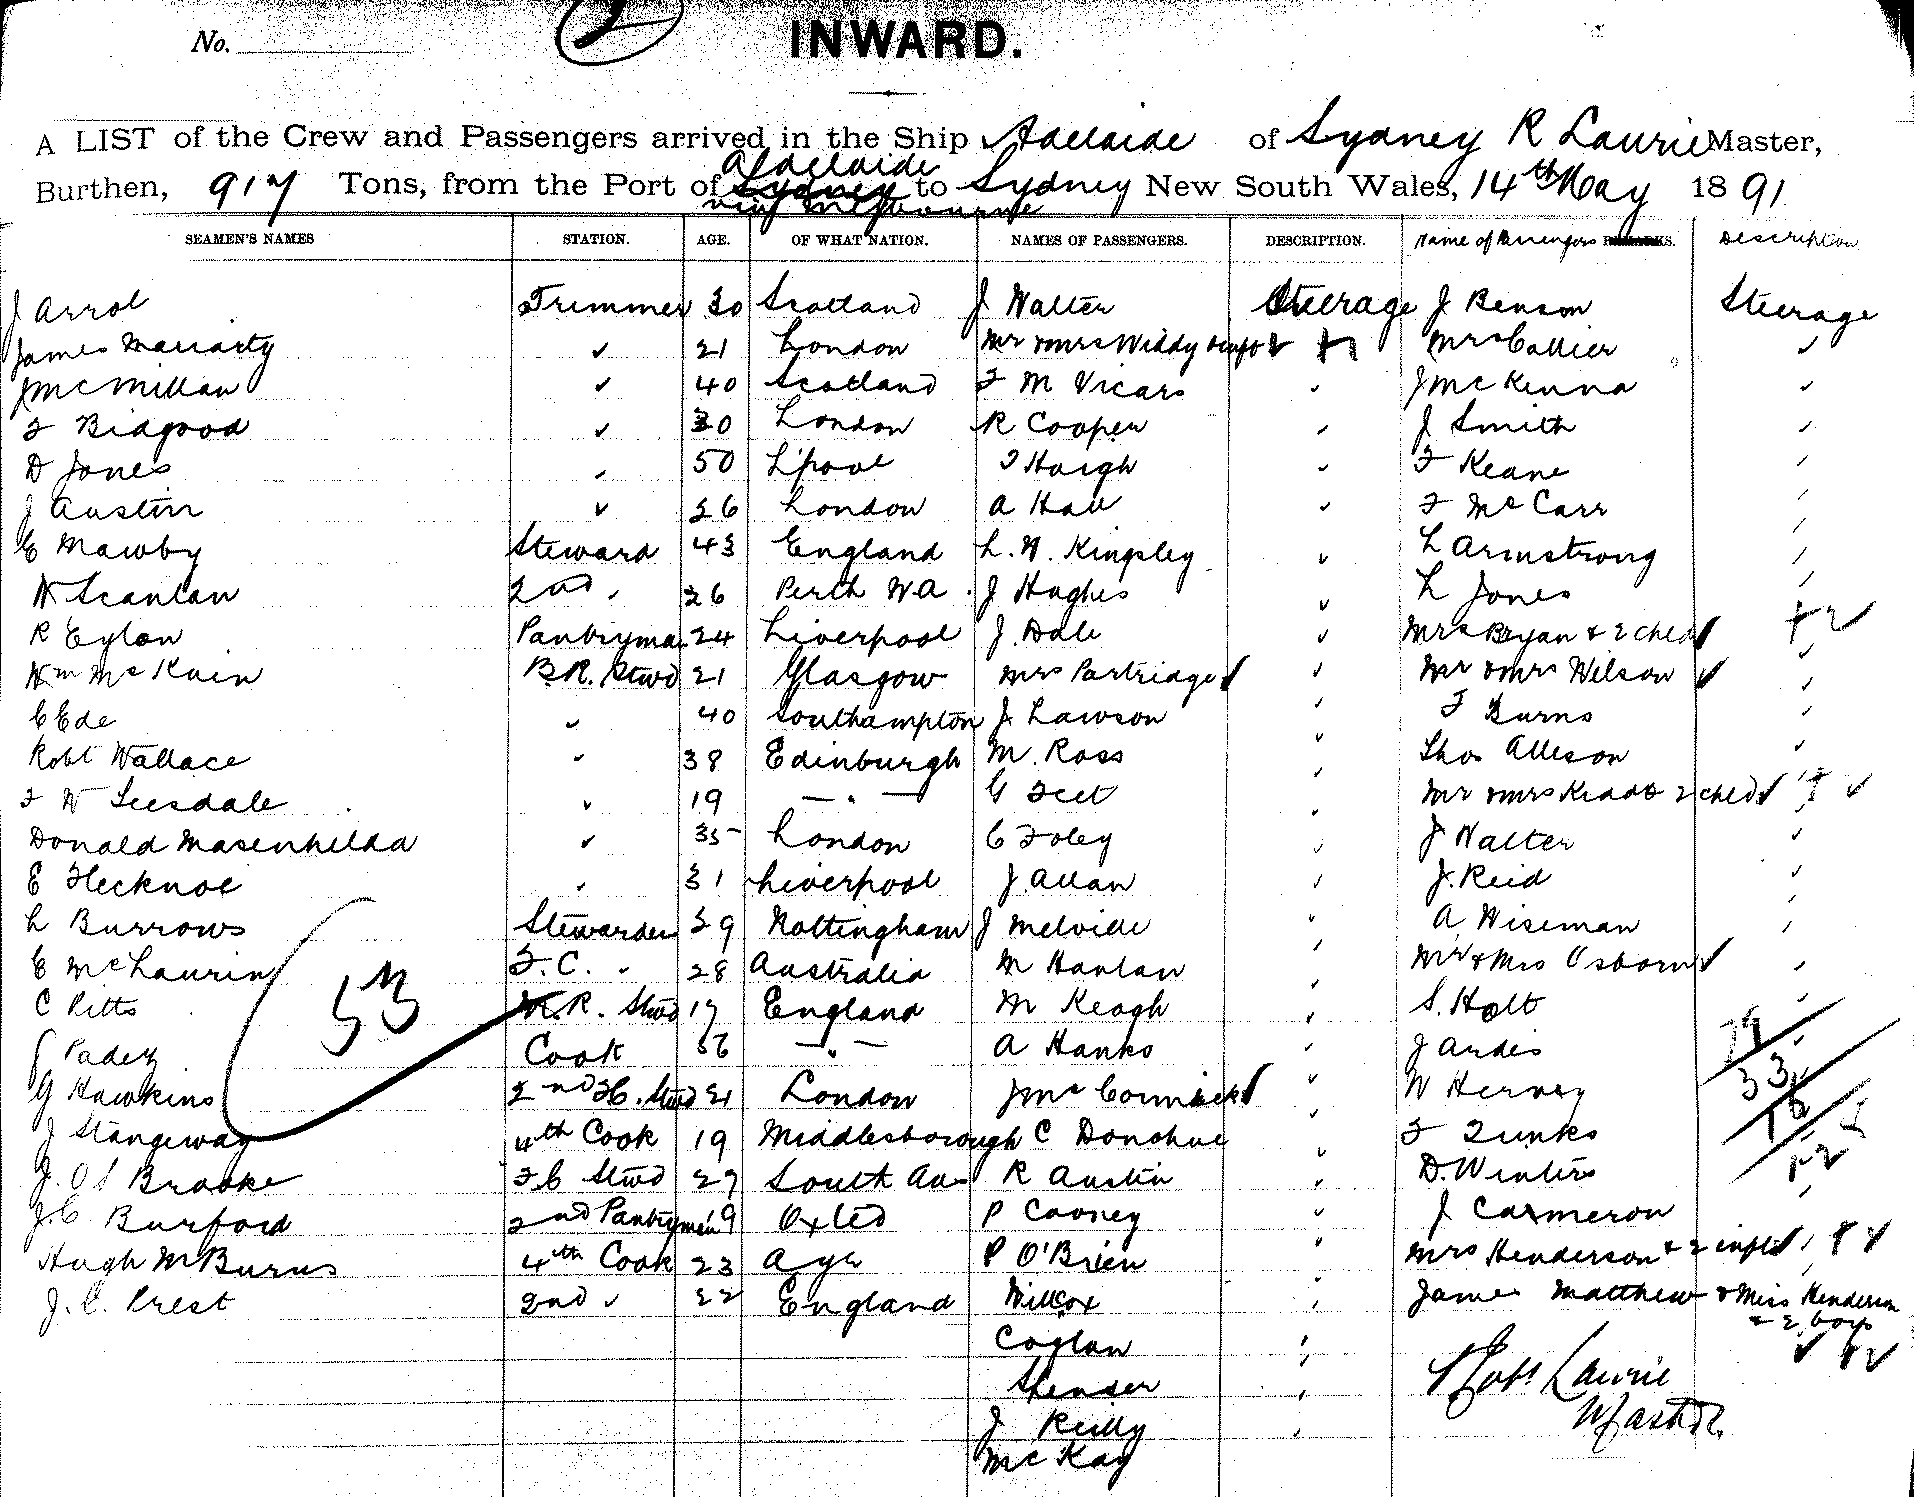 No.
2
INWARD.
A LIST of the Crew and Passengers arrived in the Ship Adelaide of Sydney R Laurie Master,
Adelaide
Burthen, 917 Tons, from the Port of Sydney to Sydney New South Wales, 14th May 1891
via Melbourne
SEAMEN'S NAMES STATION. AGE. OF WHAT NATION. NAMES OF PASSENGERS. DESCRIPTION. Name of Passengers REMARKS. Description
J Arrol Trimmer 30 Scotland J Walter Steerage J Benson Steerage
James Mariarty 21 London Mr & Mrs Widdy Mrs Collier
J McMillan 40 Scotland F M Vicars J McKenna
F Bidgood 30 London R Cooper J Smith
D Jones 50 L'pool T Haigh F Keane
J Austin 26 London A Hall F McCarr
E Mawby Steward 43 England L. W. Kingsley L Armstrong
W Scanlan 2nd 26 Perth WA J Hughes L Jones
R Eylon Pantryman 24 Liverpool J. Dale Mrs Bryan & 2 Child
Wm McKain B.R. Stwd 21 Glasgow Mrs Partridge Mr & Mrs Wilson
C Ede 40 Southampton J Lawson F Burns
Robt Wallace 38 Edinburgh M. Ross Thos Alleson
F W Teesdale 19 — " — G Feet Mr & Mrs Kidd & 2 child
Donald Masenhelda 35 London C Foley J Walter
E Flecknoe 31 Liverpool J. Allan J. Reid
L Burrows Stewardess 39 Nottingham J Melville A Wiseman
E McLaurin F.C. " 28 Australia M Hanlan Mr & Mrs Osborne
C Pitts R. Stwd 17 England M Keogh S. Holt
53
J Padey Cook 56 — " — A Hanks J Ardis
G Hawkins 2nd Stwd 21 London J McCormick W Hervey
J Stangeway 4th Cook 19 Middlesborough C Donohue F Tunks
J. O. S Brooke F.C Stwd 27 South Aus R Austin D. Winters
J. C Burford 2nd Pantryman 19 Oxted P Cooney J Cameron
Hugh McBurns 4th Cook 23 Ayr P O'Brien Mrs Henderson & 2 infts
J. C. Prest 2nd " 22 England Willcox James Matthew & Miss Henderson
& 2 boys
Coglan
Spender
Robt Laurie
J Reilly
Master.
McKay